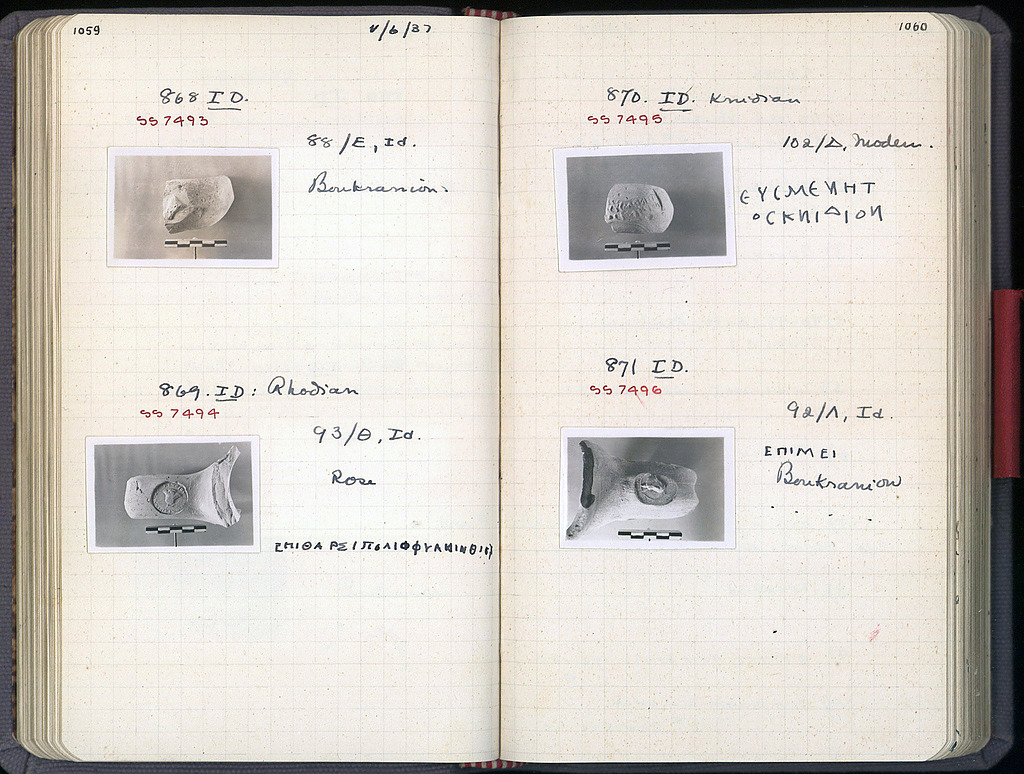 1059
V/6/37
868 ID.
SS 7493
88/E, Id.
Boukranion.
869. ID: Rhodian
SS 7494
93/Θ, Id.
Rose
1060
870. ID. Knidian
SS 7495
102/Δ, Modern.
ЄYCMEИHT
OCKИIΔIOИ
871 ID.
SS 7496
92/Λ, Id.
EΠIMEI
Boukranion